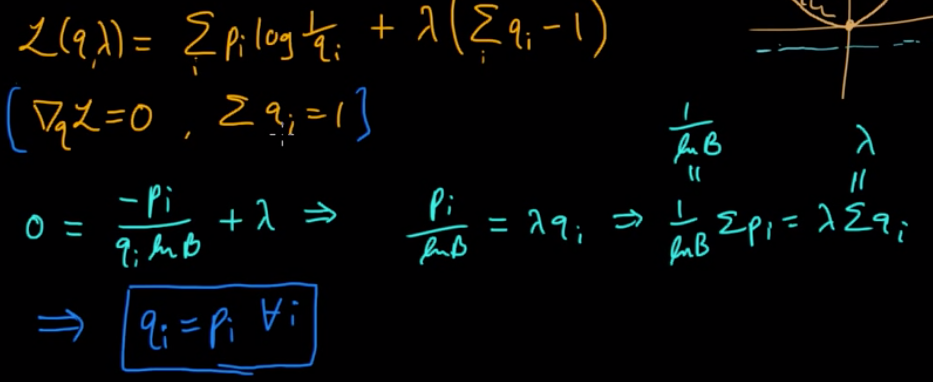 ℒ(q,λ) = Σ_i p_i log 1/q_i + λ(Σ_i q_i − 1)
[∇_q ℒ = 0 , Σ q_i = 1]
1/ln B λ
|| ||
0 = −p_i/(q_i ln B) + λ ⇒ p_i/ln B = λ q_i ⇒ 1/ln B Σ p_i = λ Σ q_i
⇒ q_i = p_i ∀i